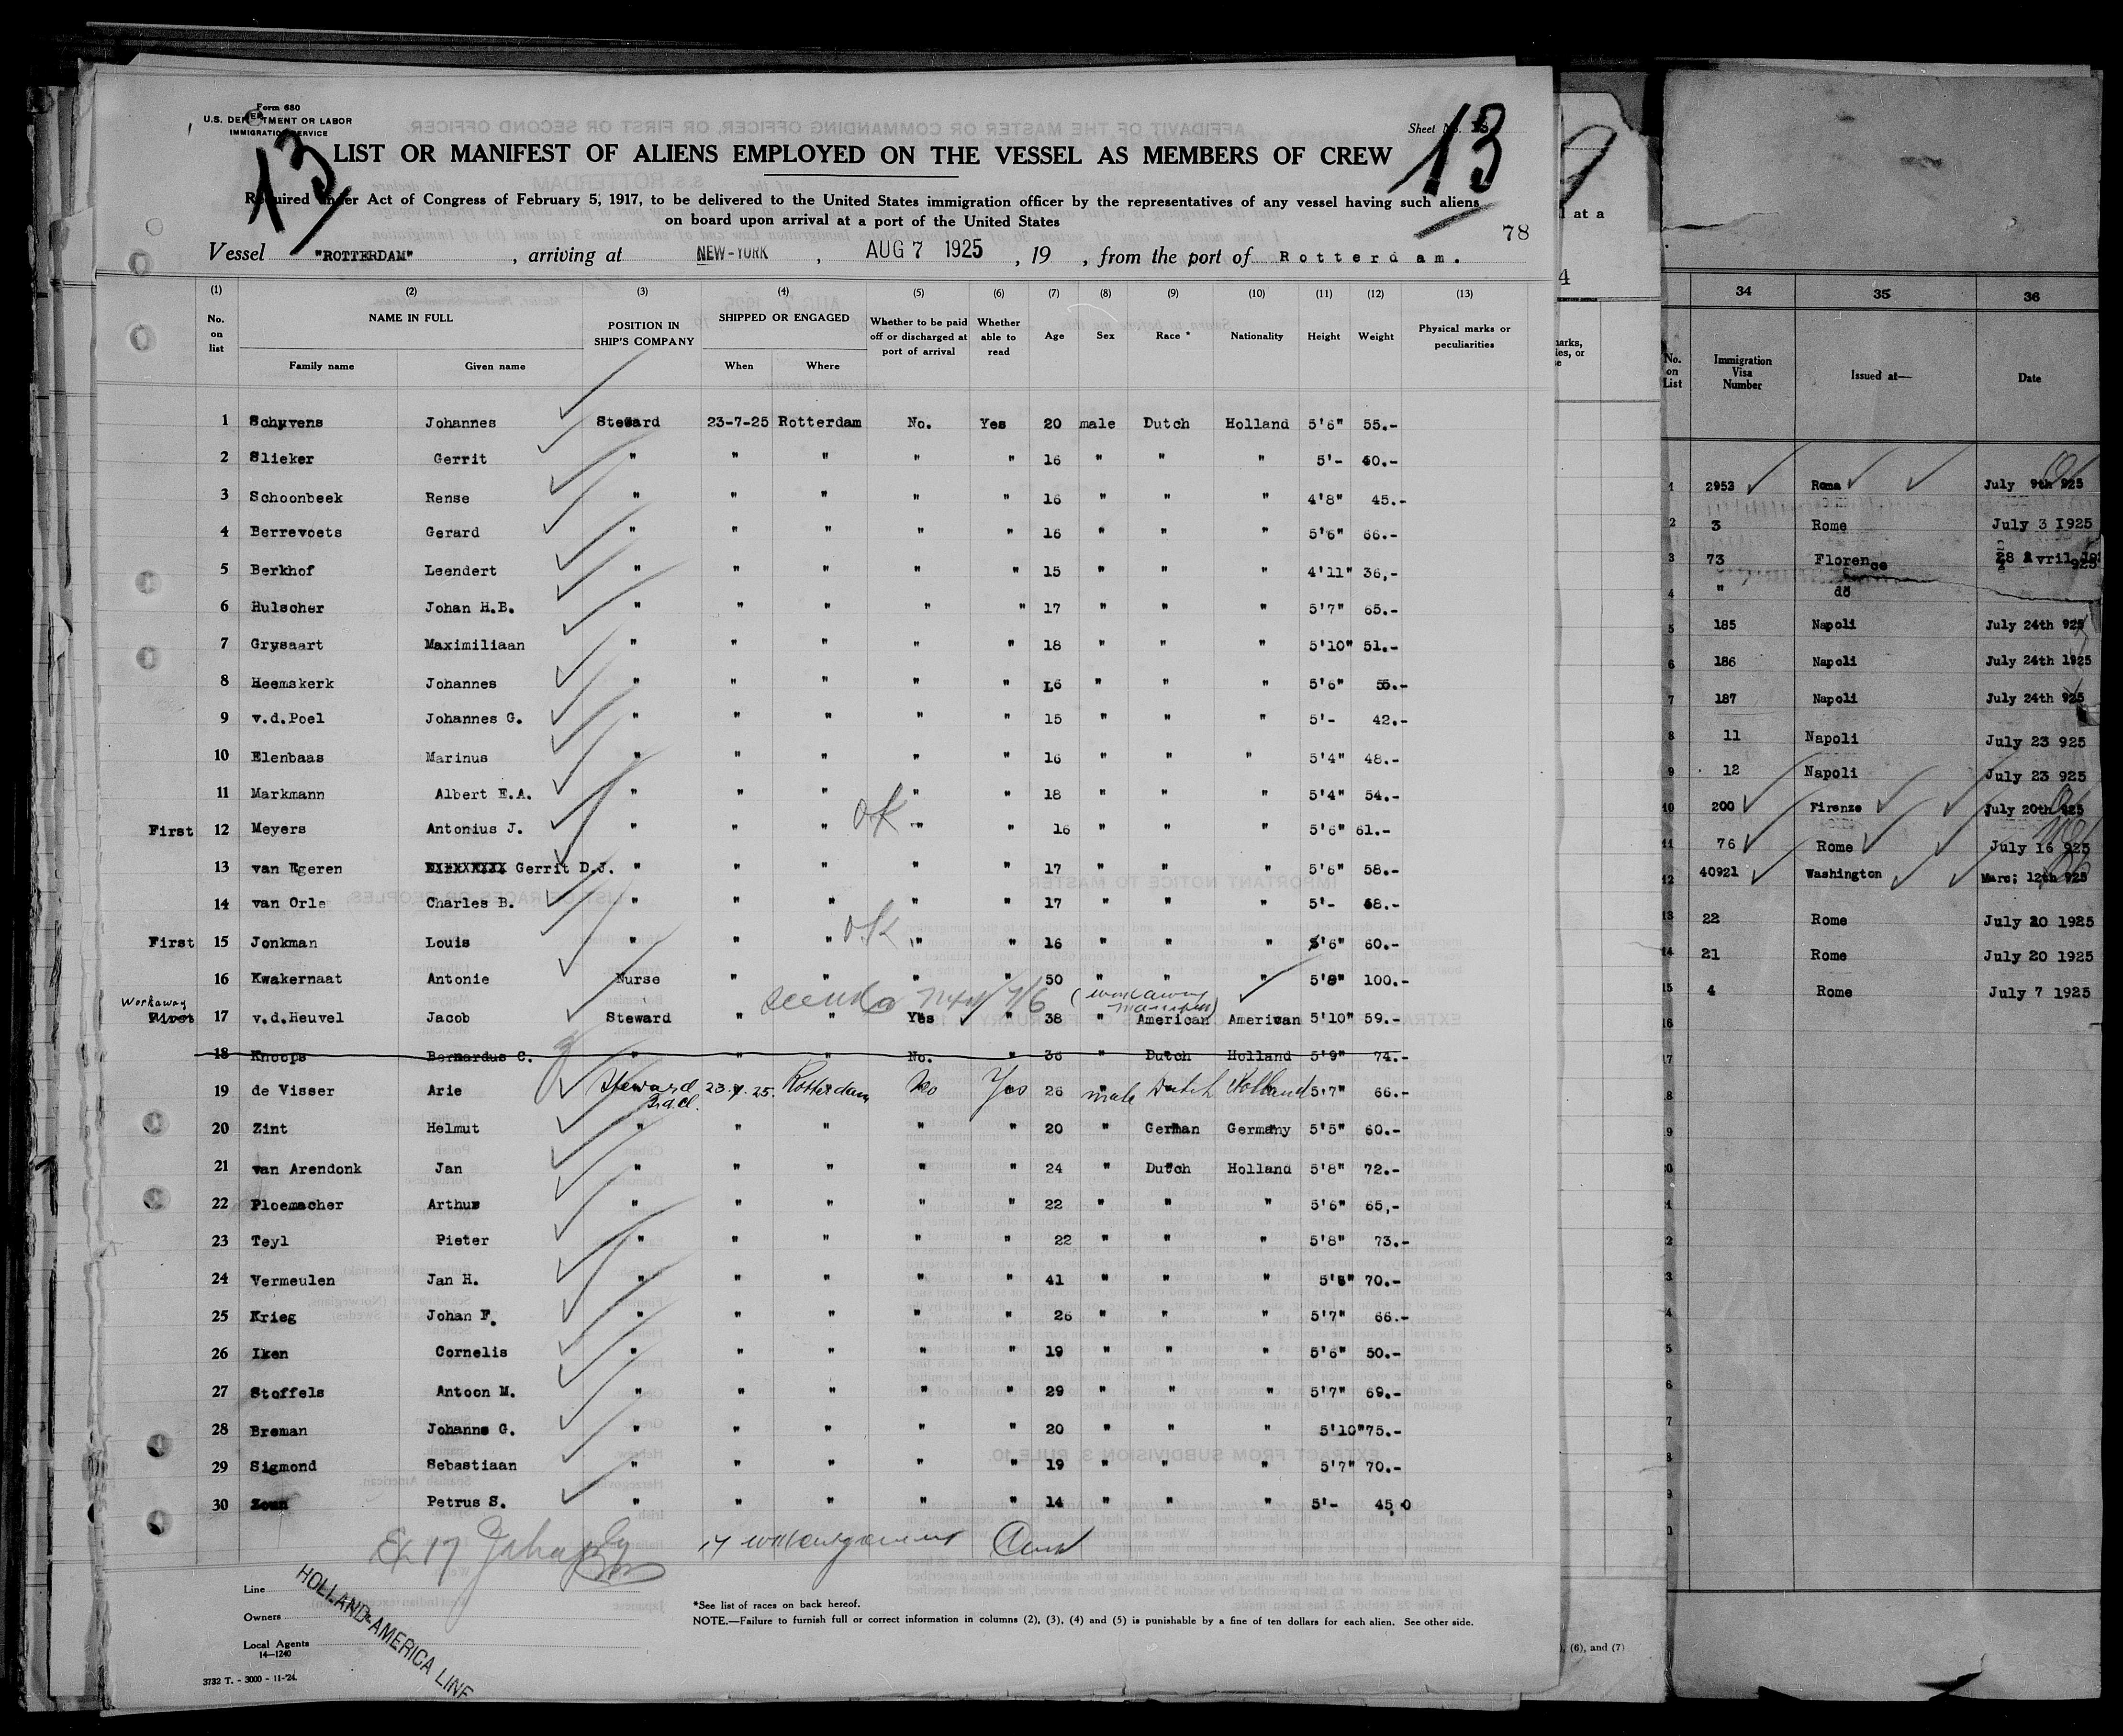 Form 680
U.S. DEPARTMENT OR LABOR
IMMIGRATION SERVICE
13
Sheet No. 13
13
LIST OR MANIFEST OF ALIENS EMPLOYED ON THE VESSEL AS MEMBERS OF CREW
Required under Act of Congress of February 5, 1917, to be delivered to the United States immigration officer by the representatives of any vessel having such aliens
on board upon arrival at a port of the United States
78
Vessel "ROTTERDAM", arriving at NEW-YORK, AUG 7 1925, 19 , from the port of Rotterdam.
(1) (2) (3) (4) (5) (6) (7) (8) (9) (10) (11) (12) (13)
No. on list NAME IN FULL POSITION IN SHIP'S COMPANY SHIPPED OR ENGAGED Whether to be paid off or discharged at port of arrival Whether able to read Age Sex Race * Nationality Height Weight Physical marks or peculiarities
Family name Given name When Where
1 Schyvens Johannes Steward 23-7-25 Rotterdam No. Yes 20 male Dutch Holland 5'6" 55.-
2 Slieker Gerrit " " " " " 16 " " " 5'- 60.-
3 Schoonbeek Rense " " " " " 16 " " " 4'8" 45.-
4 Berrevoets Gerard " " " " " 16 " " " 5'6" 66.-
5 Berkhof Leendert " " " " " 15 " " " 4'11" 36,-
6 Hulscher Johan H.B. " " " " " 17 " " " 5'7" 65.-
7 Grysaart Maximiliaan " " " " " 18 " " " 5'10" 51.-
8 Heemskerk Johannes " " " " " 16 " " " 5'6" 55.-
9 v.d.Poel Johannes G. " " " " " 15 " " " 5'- 42.-
10 Elenbaas Marinus " " " " " 16 " " " 5'4" 48.-
11 Markmann Albert E.A. " " " " " 18 " " " 5'4" 54.-
First 12 Meyers Antonius J. " " " ok " " 16 " " " 5'6" 61.-
13 van Egeren Gerrit D.J. " " " " " 17 " " " 5'6" 58.-
14 van Orle Charles B. " " " " " 17 " " " 5'- 68.-
First 15 Jonkman Louis " " " ok " " 16 " " " 5'6" 60.-
16 Kwakernaat Antonie Nurse " " " " 50 " " " 5'8" 100.-
Workaway (workaway
First 17 v.d.Heuvel Jacob Steward " " Yes " 38 " American Amerivan 5'10" 59.-
18 Knoops Bernardus C. " " " No. " 36 " Dutch Holland 5'9" 74.-
19 de Visser Arie Steward 23.7.25. Rotterdam No Yes 26 male Dutch Holland 5'7" 66.-
20 Zint Helmut " " " " " 20 " German Germany 5'5" 60.-
21 van Arendonk Jan " " " " " 24 " Dutch Holland 5'8" 72.-
22 Ploemacher Arthur " " " " " 22 " " " 5'6" 65,-
23 Teyl Pieter " " " " " 22 " " " 5'8" 73.-
24 Vermeulen Jan H. " " " " " 41 " " " 5'8" 70.-
25 Krieg Johan F. " " " " " 26 " " " 5'7" 66.-
26 Iken Cornelis " " " " " 19 " " " 5'6" 50.-
27 Stoffels Antoon M. " " " " " 29 " " " 5'7" 69.-
28 Breman Johanns G. " " " " " 20 " " " 5'10" 75.-
29 Sigmond Sebastiaan " " " " " 19 " " " 5'7" 70.-
30 Zoun Petrus S. " " " " " 14 " " " 5'- 45,0
Ex 17
Line
Owners
Local Agents
14—1240
HOLLAND-AMERICA LINE
*See list of races on back hereof.
NOTE.—Failure to furnish full or correct information in columns (2), (3), (4) and (5) is punishable by a fine of ten dollars for each alien. See other side.
3732 T. - 3000 - 11-'24.
at a
4
(6), and (7)
34 35 36
No. on List Immigration Visa Number Issued at— Date
1 2953 Roma July 9th 925
2 3 Rome July 3 1925
3 73 Florence 28 Avril 1925
4 " do
5 185 Napoli July 24th 925
6 186 Napoli July 24th 1925
7 187 Napoli July 24th 925
8 11 Napoli July 23 925
9 12 Napoli July 23 925
10 200 Firenze July 20th 925
11 76 Rome July 16 925
12 40921 Washington Marc; 12th 925
13 22 Rome July 20 1925
14 21 Rome July 20 1925
15 4 Rome July 7 1925
16